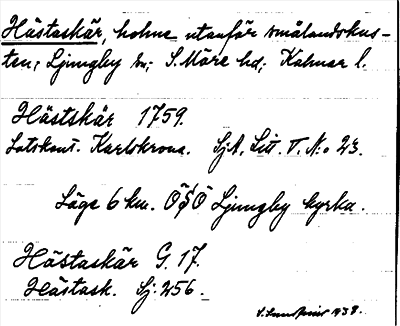 Hästaskär, holme utanför smålandskus-
ten, Ljungby sn; S. Möre hd; Kalmar l.
Hästskär 1759.
Lotskont. Karlskrona. SjA, Litt. T. No 23.
Läge 6 km. OSO Ljungby kyrka.
Hästaskär G. 17.
Hästask. Sj: 256.
1939.